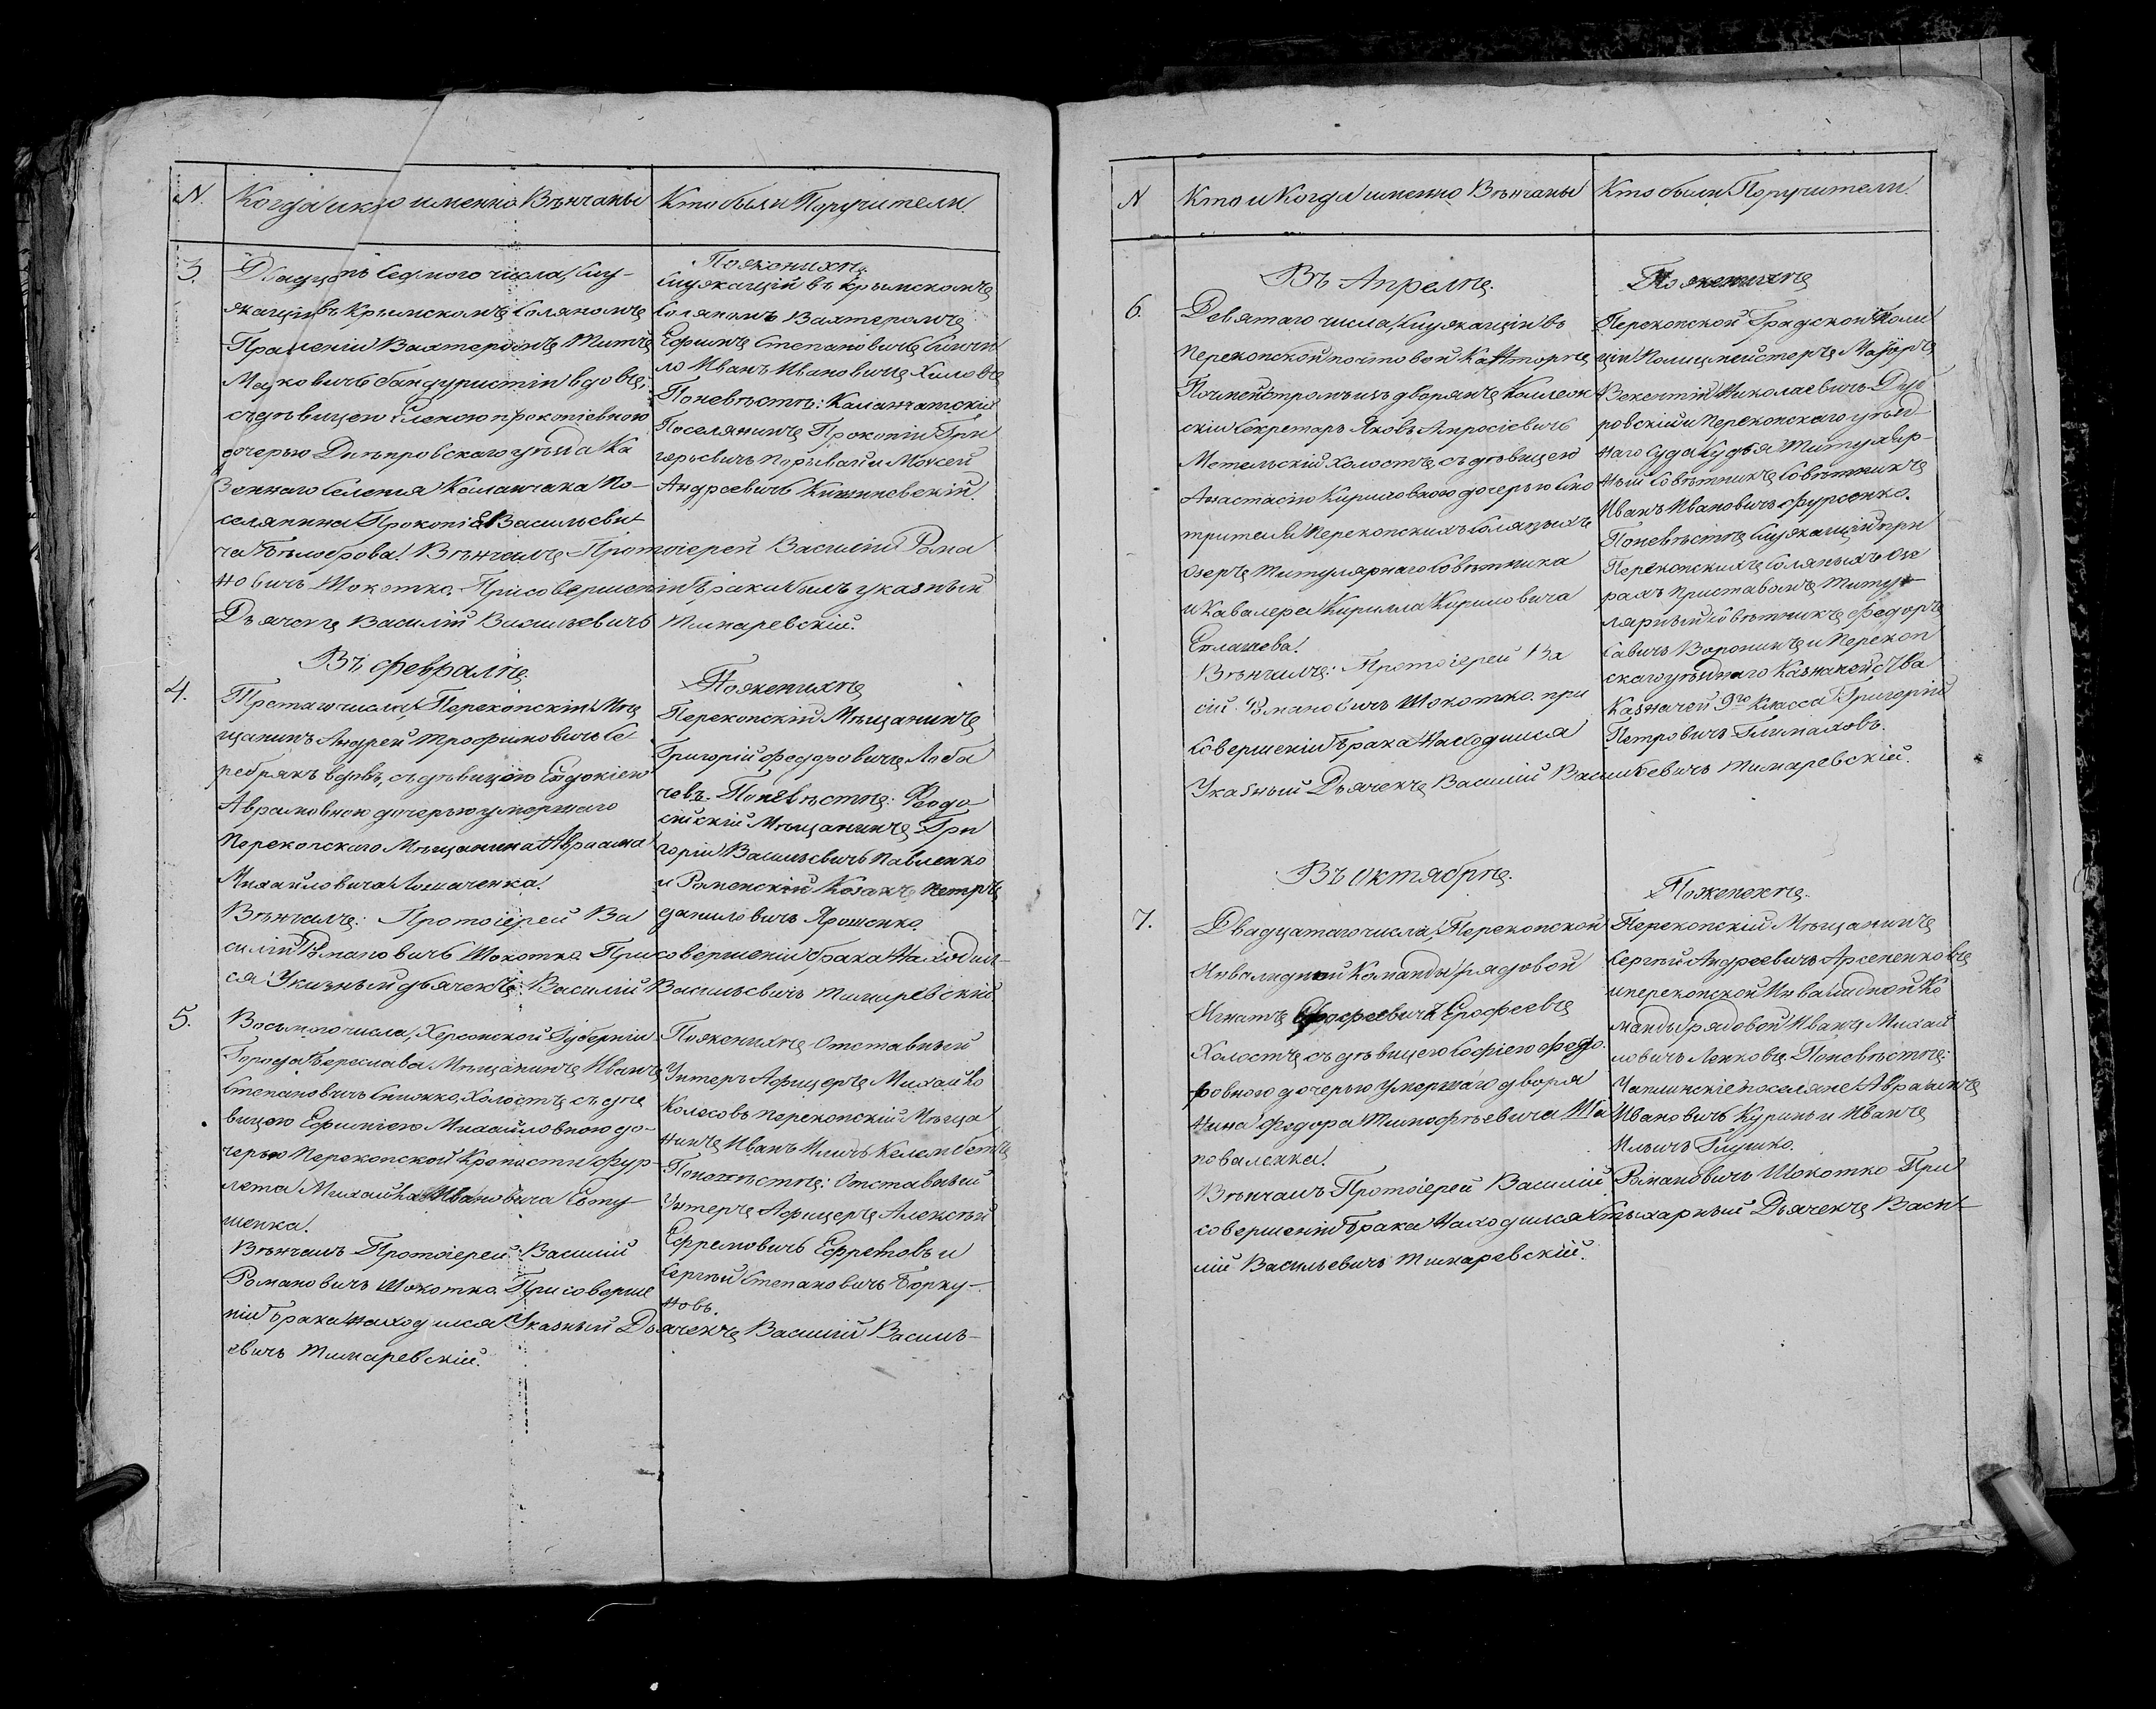 N. Когда и кто именно Вѣнчаны
Кто были Поручители.
3. Двадцать седмого числа, Слу-
жащій въ Крымскомъ Соляномъ
Правленіи Вахтеромъ Титъ
Марковичъ Бандуристій вдовъ,
съ дѣвицею Еленою Прокопіевною
дочерью Днѣпровскаго уѣзда Ка
зеннаго Селенія Каланчака По-
селянина Прокопія Васильеви
ча Бѣлозерова. Вѣнчалъ Протоіерей Василій Рома
новичъ Шокотко. При совершеніи брака былъ указный
Дьячокъ Василій Васильевичъ Тимаревскій.
По женихѣ
Служащій въ Крымскомъ
Соляномъ Вахтеромъ
Ефимъ Степановичъ
Иванъ Ивановичъ
По невѣстѣ: Каланчатскій
Поселянинъ Прокопій Гри
горьевичъ и Моисей
Андреевичъ Кишиневскій.
Въ Февралѣ
4. Третаго числа, Перекопскій Мѣ
щанинъ Андрей Трофимовичъ Се
ребрякъ вдовъ, съ дѣвицею Евдокіею
Аврамовною дочерью умершаго
Перекопскаго Мѣщанина Авраама
Михайловича Лошаченка.
Вѣнчалъ: Протоіерей Ва
силій Романовичъ Шокотко. При совершеніи брака находил-
ся Указный дьячекъ: Василій Васильевичъ Тимаревскій
По женихѣ
Перекопскій Мѣщанинъ
Григорій Федоровичъ Лоба
чевъ. По невѣстѣ: Феодо
сійскій Мѣщанинъ Гри
горій Васильевичъ Павленко
и Роменскій Козакъ Петръ
Даниловичъ Ярошенко.
5. Восьмого числа, Херсонской Губерніи
Города Береслава Мѣщанинъ Иванъ
Степановичъ Снижко, Холостъ съ дѣ
вицею Ефиміею Михайловною до-
черью Перекопской Крепости Фур-
лета Михайла Ивановича Евту-
шенка.
Вѣнчалъ Протоіерей: Василій
Романовичъ Шокотко. При соверше
ніи брака находился Указный Дьячекъ Василій Василь-
евичъ Тимаревскій.
По женихѣ Отставный
Унтеръ Афицеръ Михайло
Колесовъ Перекопскій Мѣща
нинъ Иванъ Иличъ Келембетъ
По невѣстѣ: Отставный
Унтеръ Афицеръ Алексѣй
Ефремовичъ Ефремовъ и
Сергѣй Степановичъ Борку-
новъ.
N Кто и Когда именно Вѣнчаны
Кто были Поручители.
Въ Апрелѣ.
6. Девятаго числа, Служащій въ
Перекопской почтовой Канторѣ
Почмейстромъ изъ дворянъ Коллеж
скій Секретарь Яковъ Апросіевичъ
Метельскій холостъ, съ дѣвицею
Анастасіею Кириловною дочерью Смо
трителя Перекопскихъ Соляныхъ
Озеръ Титулярнаго Совѣтника
и Кавалера Кирилла Кириловича
Вѣнчалъ: Протоіерей Ва
сій. Романовичъ Шокотко. при
Совершеніи брака находился
Указный Дьячекъ Василій Васильевичъ Тимаревскій.
По женихѣ
Перекопской Градской Поли
ціи Полицмейстеръ Маіоръ
Викентій Николаевичъ Дуб
ровскій и Перекопскаго уѣзд
наго Суда Судья Титуляр-
ный Совѣтникъ Совѣтникъ
Иванъ Ивановичъ Фурсенко.
По невѣстѣ Служащій при
Перекопскихъ Соляныхъ Озе
рахъ приставомъ Титу-
лярный Совѣтникъ Федоръ
Савичъ Воронинъ и Перекоп
скаго уѣзднаго Казначейства
Казначей 9го Класса Григорій
Петровичъ
Въ Октябрѣ.
7. Двадцатаго числа, Перекопской
Инвалидной Команды рядовой
Игнатъ Ерофеевичъ Ерофеевъ
Холостъ, съ дѣвицею Софіею Федо
ровною дочерью умершаго дворя
нина Федора Тимофѣевича Ша
поваленка.
Вѣнчалъ Протоіерей Василій Романовичъ Шокотко При
совершеніи брака находился Стихарный Дьячекъ Васи-
лій Васильевичъ Тимаревскій.
По женихѣ.
Перекопскій Мѣщанинъ
Сергѣй Андреевичъ Арсененковъ
и перекопской Инвалидной Ко
манды рядовой Иванъ Михай
ловичъ Ленковъ. По невѣстѣ:
Чаплинскіе поселяне Авраамъ
Ивановичъ Куринъ и Иванъ
Ильичъ Глушко.